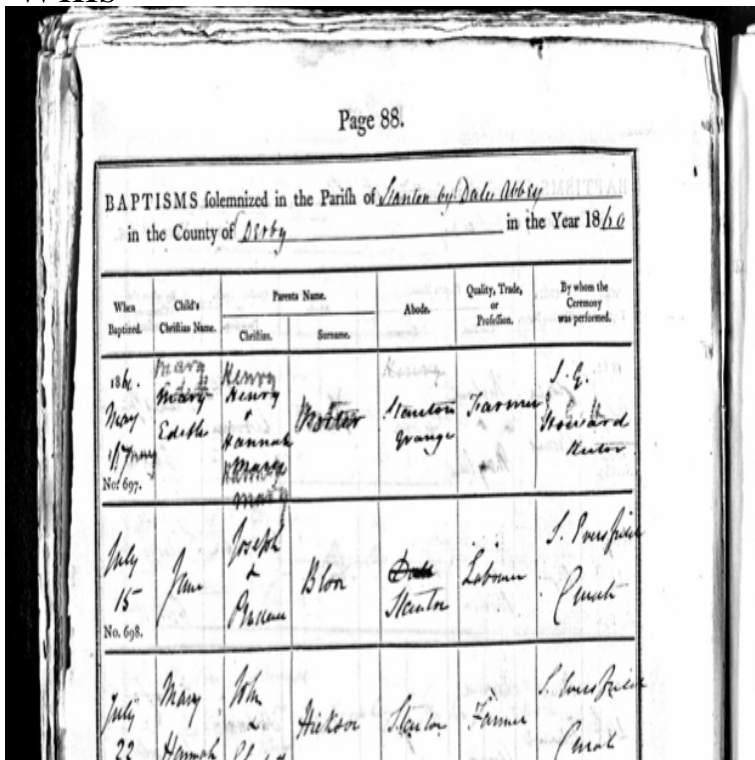 Page 88.
BAPTISMS solemnized in the Parish of Stanton by Dale Abbey
in the County of Derby in the Year 1860
When
Baptized.
Child's
Christian Name.
Parents Name.
Christian.
Surname.
Abode.
Quality, Trade,
or
Profession.
By whom the
Ceremony
was performed.
1860.
May
No. 697.
Mary
Mary
Edith
Henry
Henry
&
Hannah
Mary
Mary
Stanton
Grange
Farmer
S. G.
July
15
No. 698.
Jane
Joseph
&
Stanton
Labourer
Curate
July
22
Mary
Hannah
John
&
Stanton
Farmer
Curate